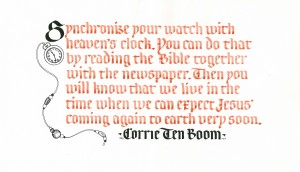 Synchronize your watch with
heaven's clock. You can do that
by reading the Bible together
with the newspaper. Then you
will know that we live in the
time when we can expect Jesus'
coming again to earth very soon.
-Corrie Ten Boom-